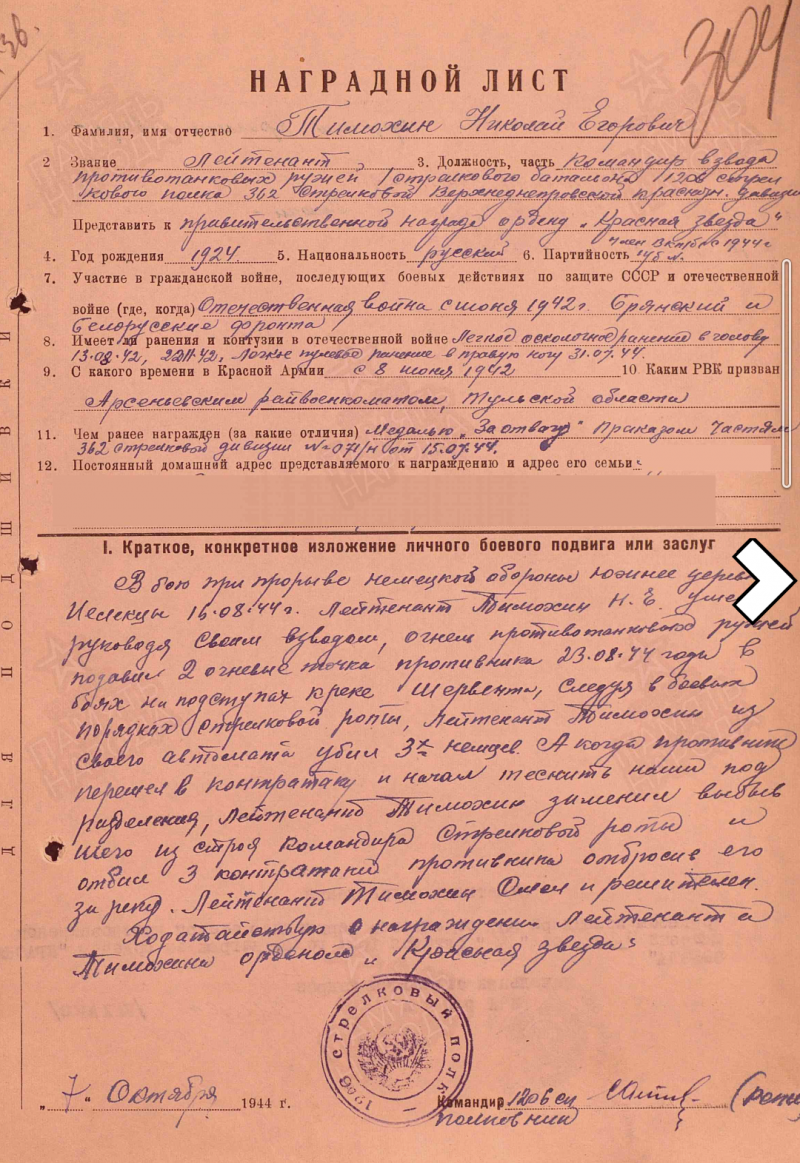 304
НАГРАДНОЙ ЛИСТ
1. Фамилия, имя отчество Тимохин Николай Егорович
2 Звание Лейтенант 3. Должность, часть Командир взвода
противотанковых ружей 1 стрелкового баталиона 1206 стрел
кового полка 362 Стрелковой Верхнеднепровской краснозн. дивизии
Представить к правительственной награде ордену „Красная звезда"
4. Год рождения 1924 5. Национальность русский 6. Партийность член ВКП(б) с 1944 г
7. Участие в гражданской войне, последующих боевых действиях по защите СССР и отечественной
войне (где, когда) Отечественная война с июня 1942 г. Брянский и
Белорусские фронта
8. Имеет ли ранения и контузии в отечественной войне Легкое осколочное ранений в голову
13.08.42, легкое пулевое ранение в правую ногу 31.07.44.
9. С какого времени в Красной Армии с 8 июня 1942 10. Каким РВК призван
Арсеньевским райвоенкоматом, Тульской области
11. Чем ранее награжден (за какие отличия) Медалью „За отвагу" Приказом Частям
362 стрелковой дивизии № 071/н от 15.07.44.
12. Постоянный домашний адрес представляемого к награждению и адрес его семьи:
I. Краткое, конкретное изложение личного боевого подвига или заслуг
В бою при прорыве немецкой обороны южнее дерев
15.08.44 г. Лейтенант Тимохин Н. Е. уме
руководя своим взводом, огнем противотанковых ружей
подавил 2 огневые точка противника 23.08.44 года в
боях на подступах к реке Шервента, следуя в боевых
порядках стрелковой роты, Лейтенант Тимохин из
своего автомата убил 3х немцев. А когда противник
перешел в контратаку и начал теснить наши под
разделения, Лейтенант Тимохин заменил выбыв
шего из строя командира Стрелковой роты и
отбил 3 контратаки противника отбросив его
за реку. Лейтенант Тимохин Смел и решителен.
Ходатайствую о награждении Лейтенанта
Тимохина орденом „Красная звезда"
1206 СТРЕЛКОВЫЙ ПОЛК
„7" Октября 1944 г.
Командир 1206 сп
полковник
ДЛЯ ПОДШИВКИ